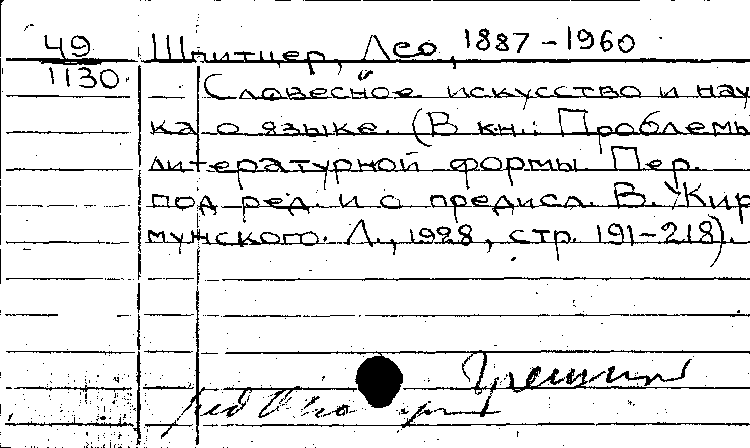 49 Шпитцер, Лео, 1887-1960
1130 Словесное искусство и нау
ка о языке. (В кн.: Проблемы
литературной формы. Пер.
под ред. и с предисл. В. Жир
мунского. Л., 1928, стр. 191-218).